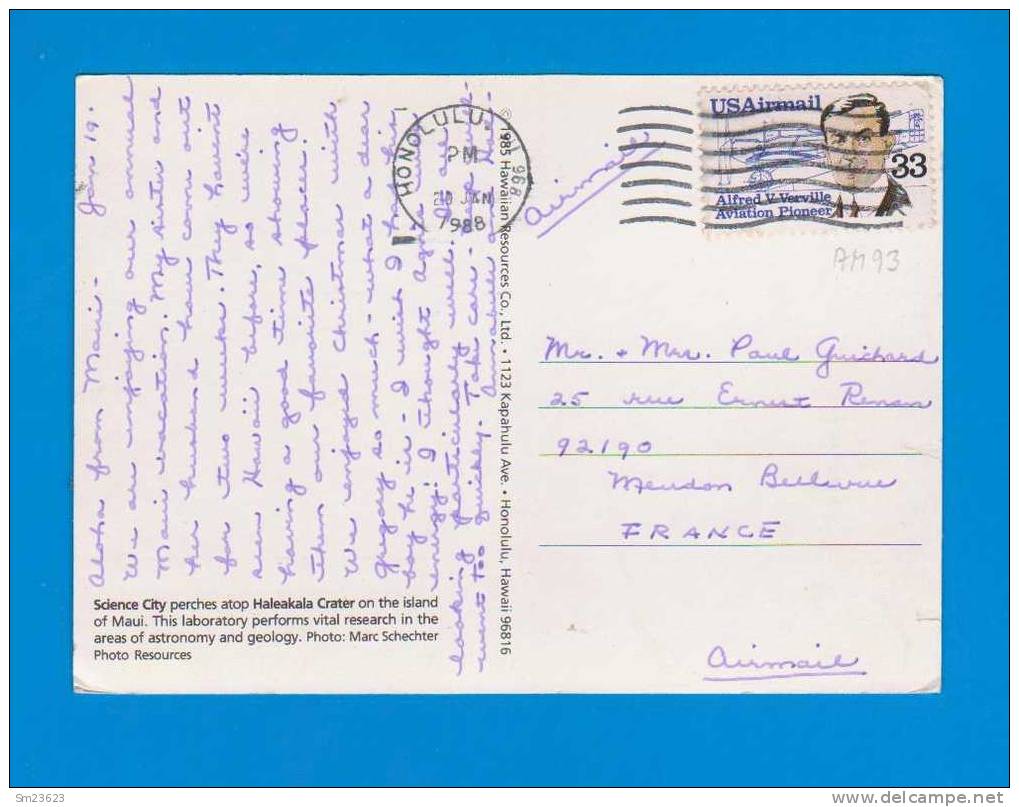 Aloha from Maui - Jan 19.
We are enjoying our annual
Maui vacation. My sister and
her husband have come out
for two weeks. They havent
seen Hawaii before, so we're
having a good time showing
them our favorite places.
We enjoyed Christmas with
Gregory so much - what a dear
boy he is - I wish I had his
energy! I thought Agnes wasn't
looking particularly well.
went too quickly. Take care -
Science City perches atop Haleakala Crater on the island
of Maui. This laboratory performs vital research in the
areas of astronomy and geology. Photo: Marc Schechter
Photo Resources
© 1985 Hawaiian Resources Co., Ltd. • 1123 Kapahulu Ave. • Honolulu, Hawaii 96816
HONOLULU, HI 968
PM
20 JAN
1988
Airmail
USAirmail
33
Alfred V. Verville
Aviation Pioneer
AM93
Mr. + Mrs. Paul Guichard
25 rue Ernest Renan
92190
Meudon Bellevue
FRANCE
Airmail
Sm23623
delcampe.net